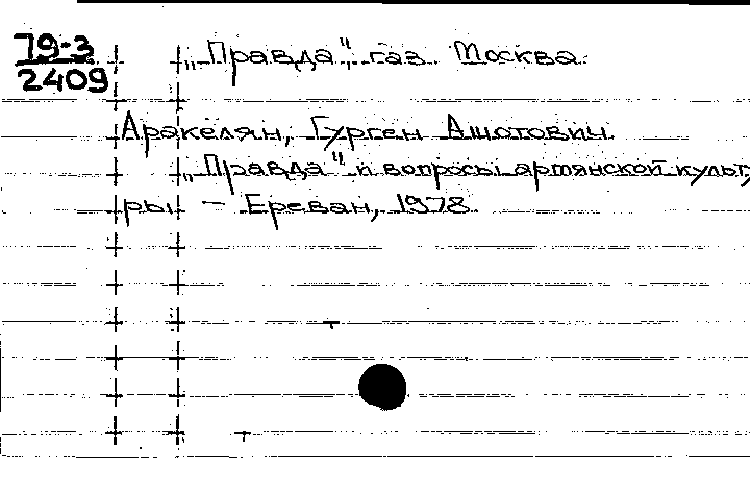 79-3
2409
„Правда" газ. Москва.
Аракелян, Гурген Ашотович.
„Правда" и вопросы армянской культу
ры. — Ереван, 1978.